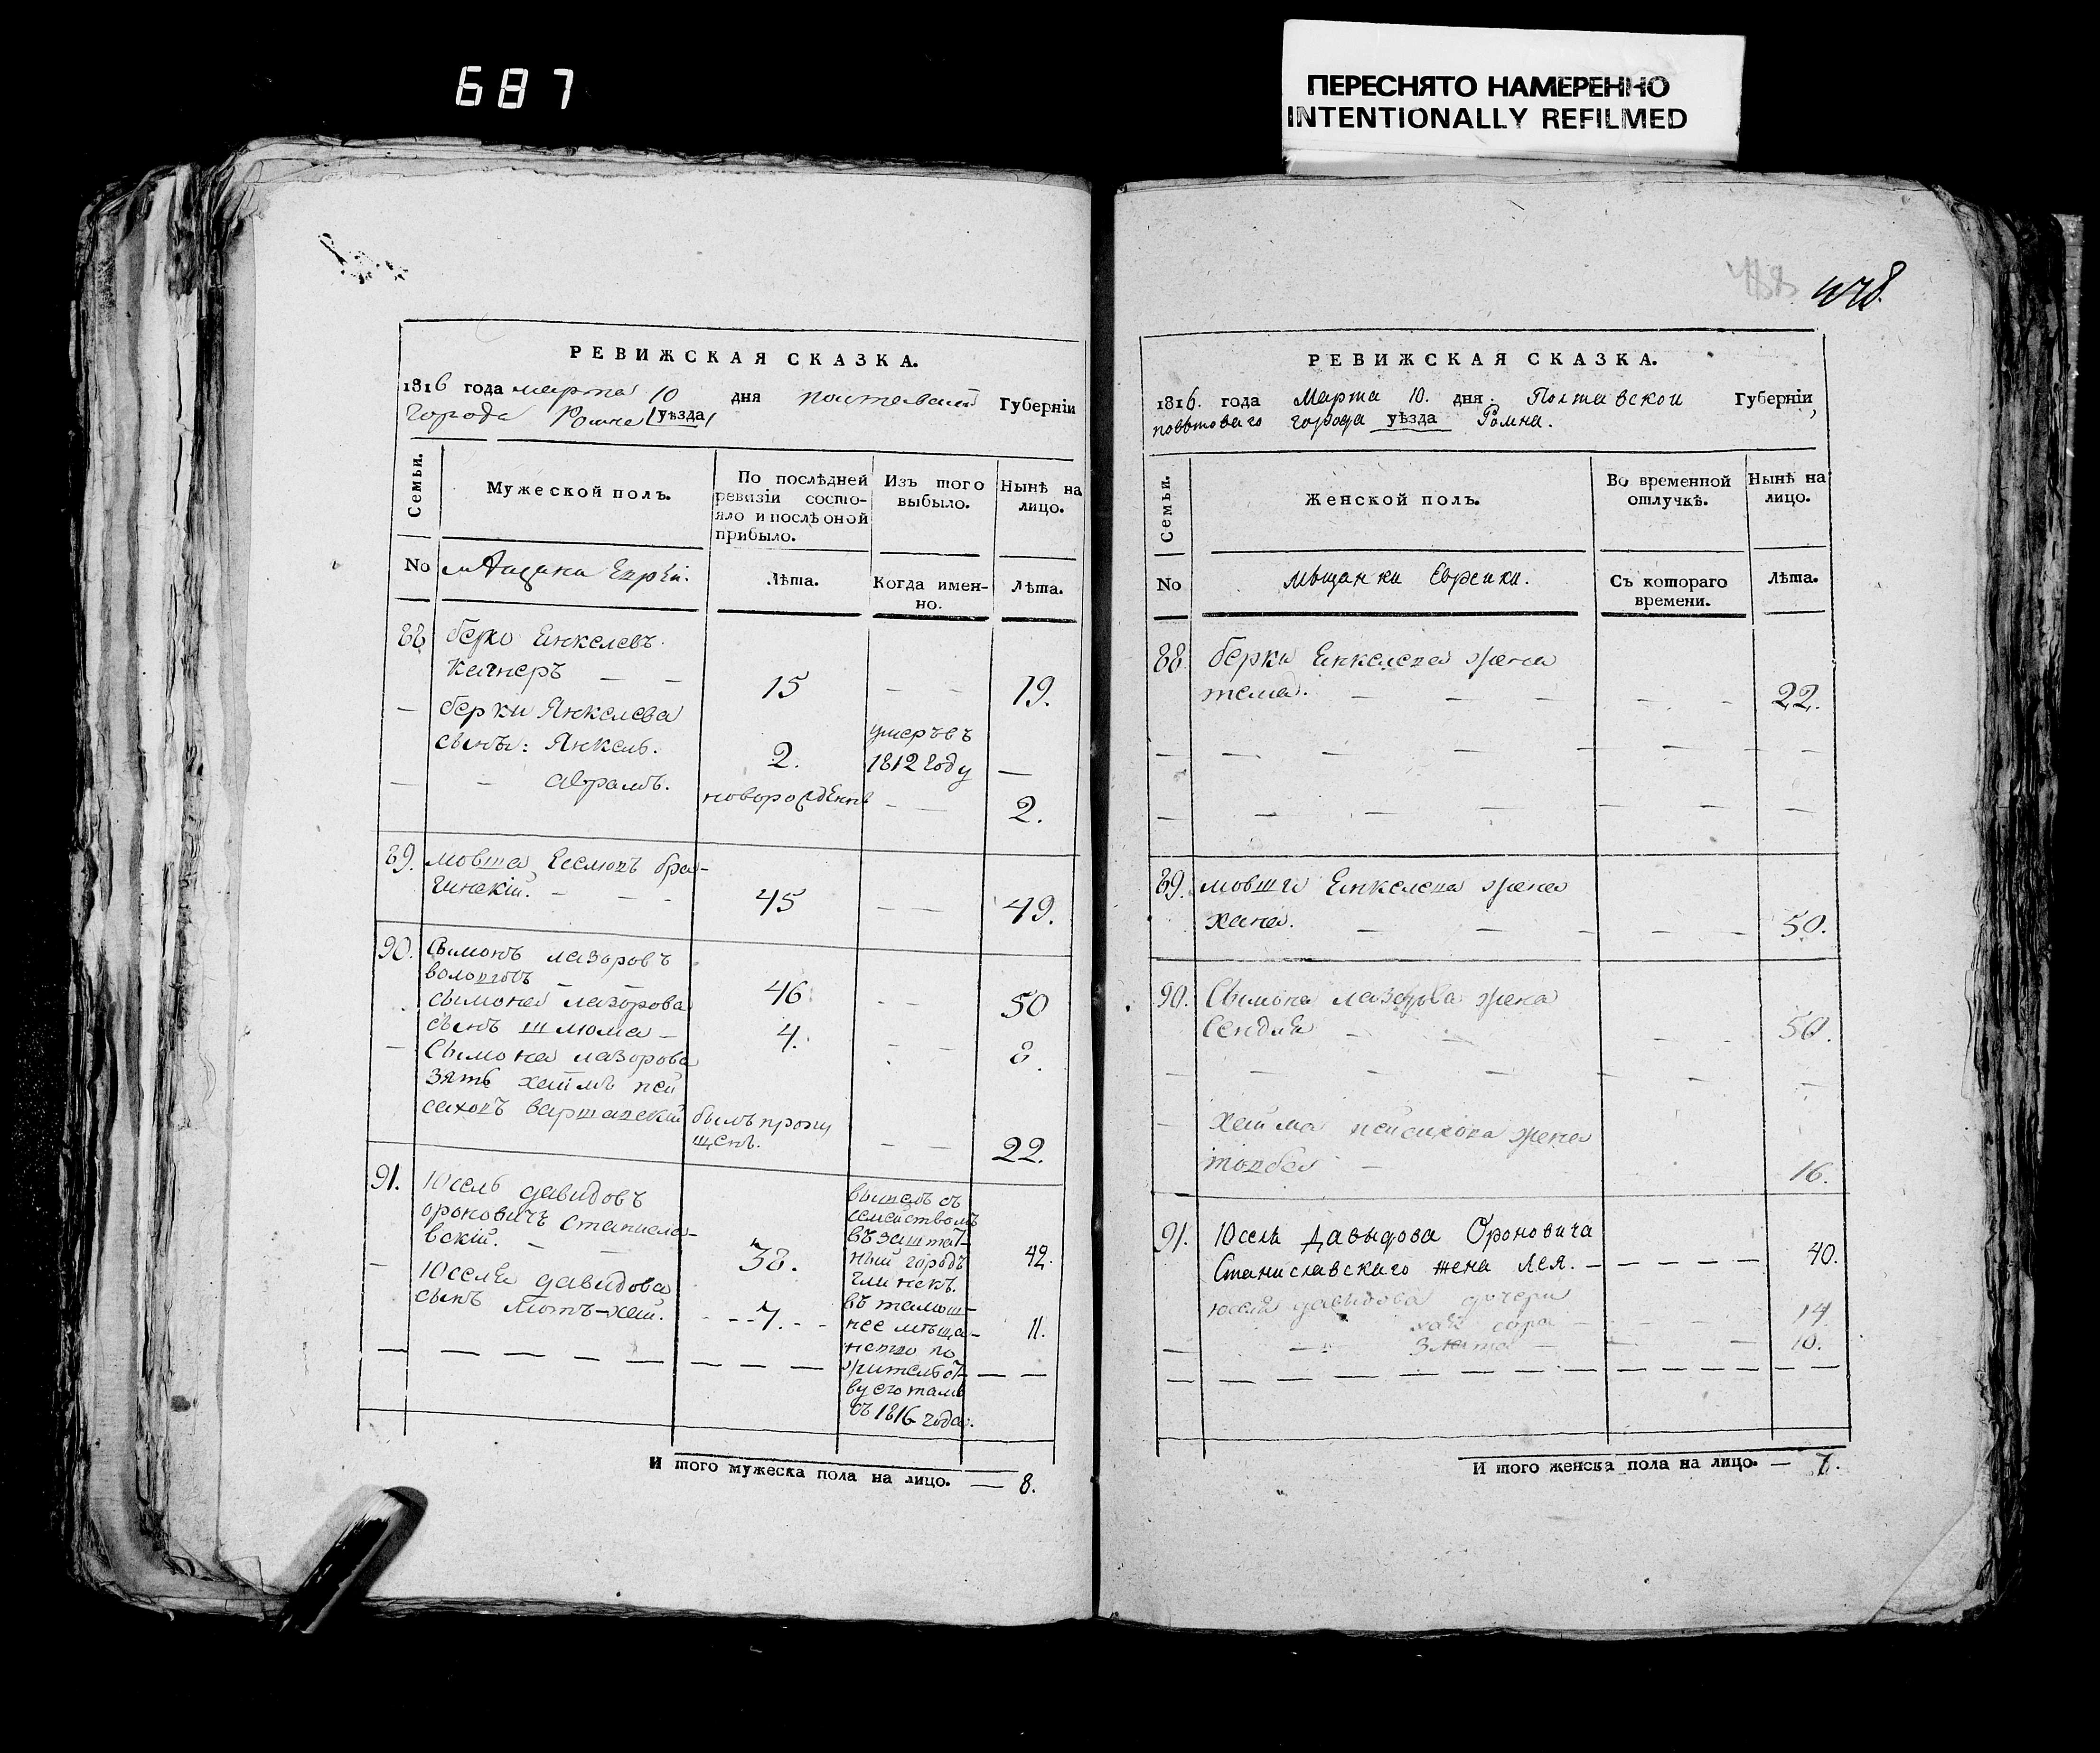 687
ПЕРЕСНЯТО НАМЕРЕННО
INTENTIONALLY REFILMED
РЕВИЖСКАЯ СКАЗКА.
1816 года марта 10 дня Полтавской Губерніи
города Ромна уѣзда
Семьи.
Мужеской полъ.
По послѣдней
ревизіи состо-
яло и послѣ оной
прибыло.
Изъ того
выбыло.
Нынѣ на
лицо.
No
мѣщани Евреи.
Лѣта.
Когда имен-
но.
Лѣта.
88 берко Еинкелевъ
15 — — 19.
— берки Янкелева
сынъ: Янкель. 2. умеръ въ
1812 году —
— — аврамъ. новорожденъ — — 2.
89. мовша
45 — — 49.
90. Сымонъ лазоровъ
46 — — 50
сымона лазорова
сынъ шлиома — 4. — — 8.
— Сымона лазорова
зять хаимъ пеи
саховъ варшавскій былъ пропу
щенъ. — — 22.
91. Юсель давидовъ
ороновичъ Станисла-
вскій. — 38. 42.
— Юселя давидова
сынъ Мотъ-хаи. - - -7. - - 11.
вышелъ съ
семействомъ
въ заштат-
ный городъ
глинскъ.
въ тамош-
нее мѣща-
нство по
жительст-
ву его тамъ
съ 1816 года.
И того мужеска пола на лицо. — 8.
478.
РЕВИЖСКАЯ СКАЗКА.
1816. года Марта 10. дня. Полтавской Губерніи,
повѣтоваго города уѣзда Ромна.
Семьи.
Женской полъ.
Во временной
отлучкѣ.
Нынѣ на
лицо.
No
мѣщанки Евреики.
Съ котораго
времени.
Лѣта.
88. берки Еинкелева жена
тема. — — — — — 22.
89. мовши Еинкелева жена
хана. — — — — — 50.
90. Сымона лазорова жена
Сендля — — — — 50.
— хаима пеисахова жена
товба — 16.
91. Юселя Давыдова Ороновича
Станиславскаго жена Лея. — — — — — 40.
юселя давидова дочери
хая сора — — — 14
— — злата — — — 10.
И того женска пола на лицо. — 7.